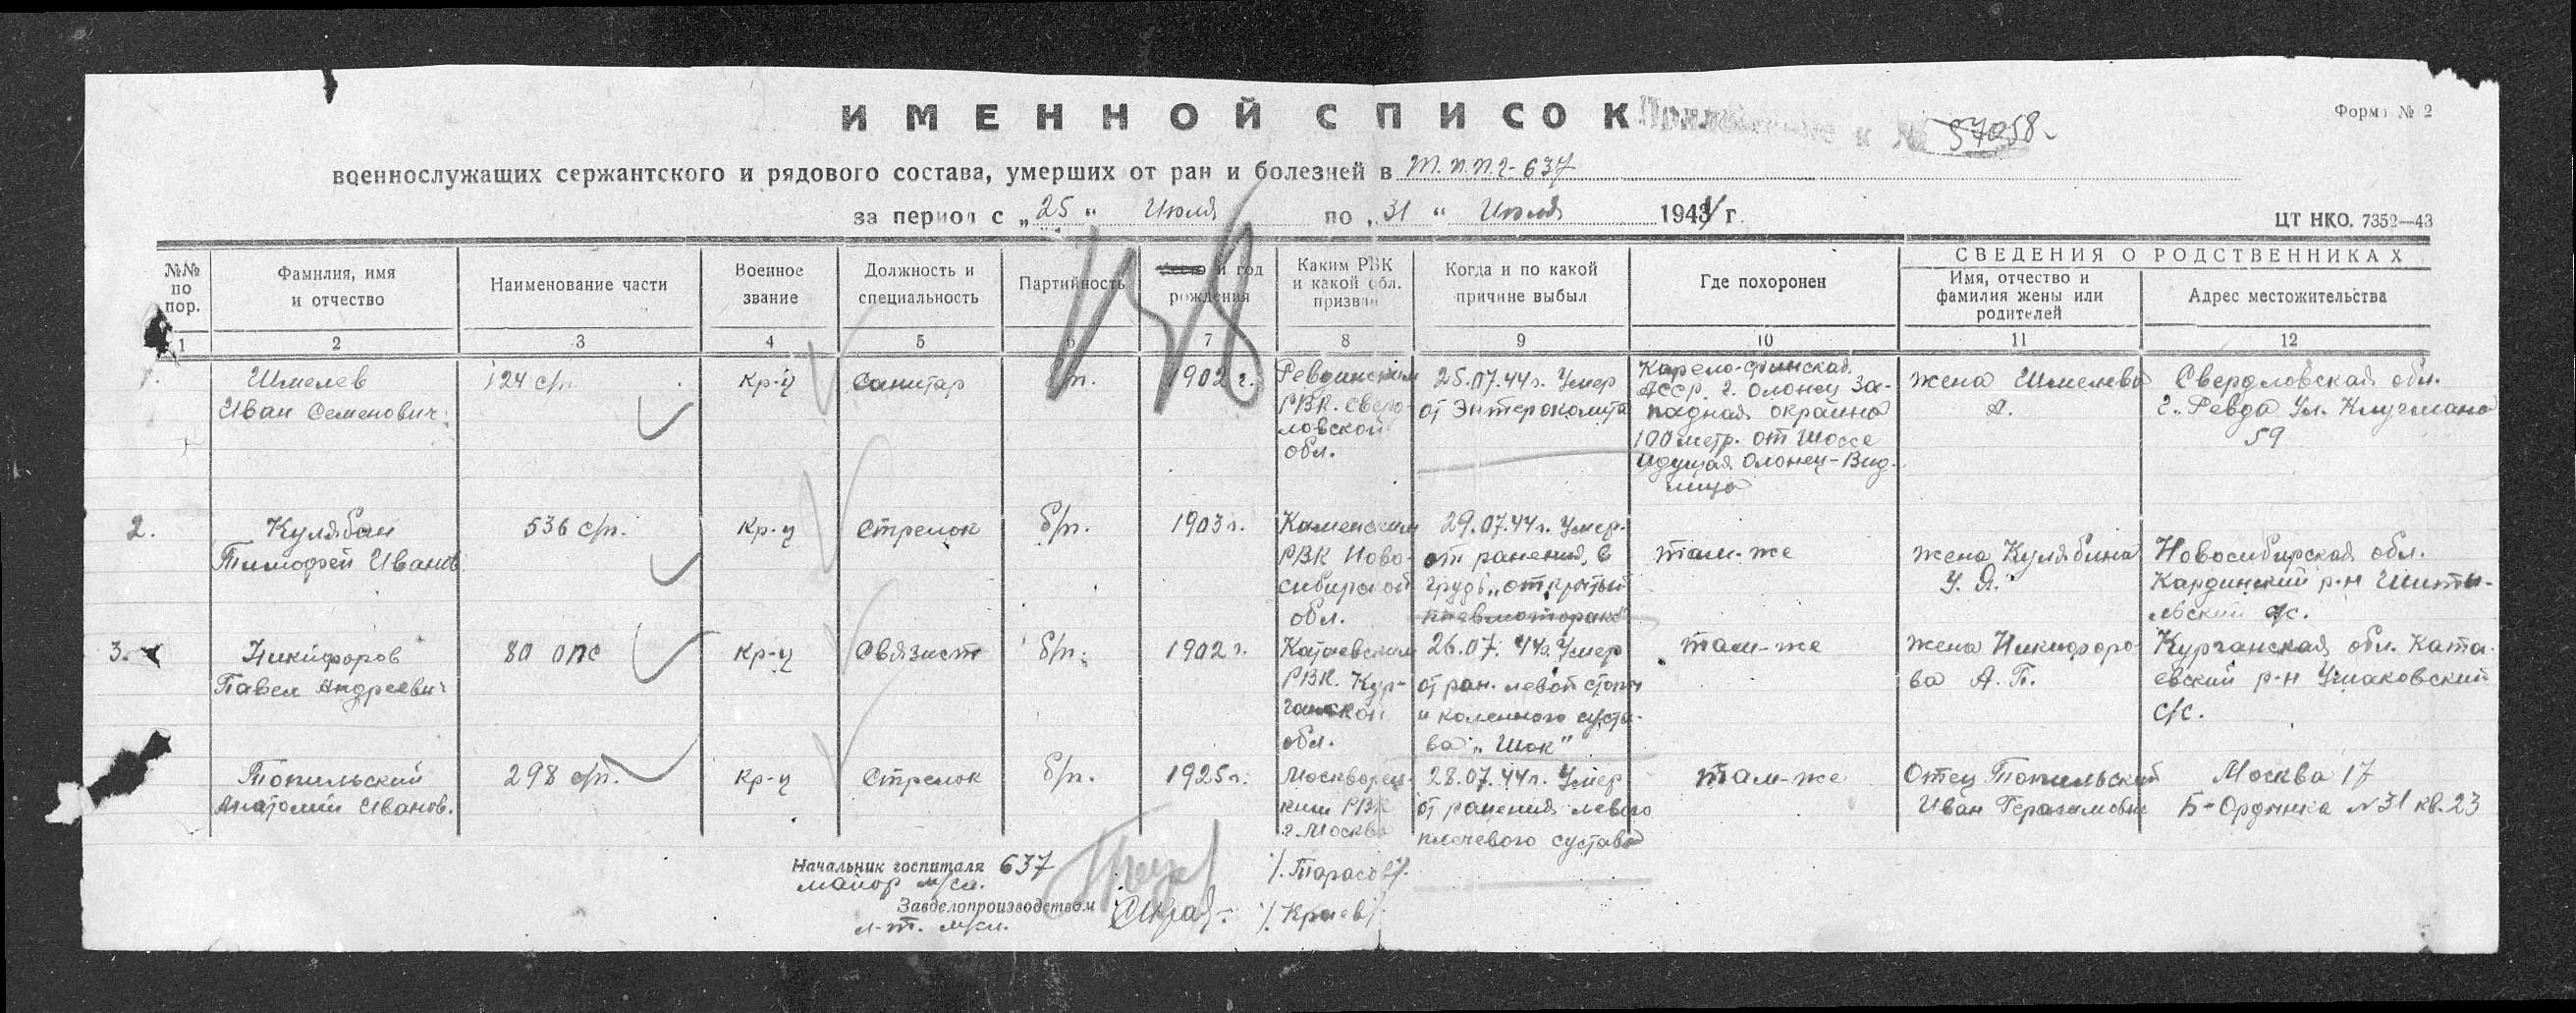 ИМЕННОЙ СПИСОК
Приложение к № 57058
Форма № 2
военнослужащих сержантского и рядового состава, умерших от ран и болезней в Т.П.П.Г-637
за период с „25" Июля по „31" Июля 1944 г.
ЦТ НКО. 7352—43
№№ по пор.
Фамилия, имя и отчество
Наименование части
Военное звание
Должность и специальность
Партийность
Место и год рождения
Каким РВК и какой обл. призван
Когда и по какой причине выбыл
Где похоронен
СВЕДЕНИЯ О РОДСТВЕННИКАХ
Имя, отчество и фамилия жены или родителей
Адрес местожительства
1 2 3 4 5 6 7 8 9 10 11 12
1.
Шмелев
Иван Семенович
124 с/п.
Кр-ц
Санитар
б/п.
1902 г.
Ревдинским
РВК. Сверд-
ловской
обл.
25.07.44г. Умер
от Энтероколита
Карело-финская
АССР. г. Олонец За-
падная окраина
100 метр. от шоссе
идущая Олонец-Вид-
лица
жена Шмелева
А.
Свердловская обл.
г. Ревда Ул.
59
2.
Кулябин
Тимофей Иванов.
536 с/п.
Кр-ц
Стрелок
б/п.
1903 г.
Каменским
РВК Ново-
сибирской
обл.
29.07.44г. Умер
от ранения в
грудь „открытый
пневмоторакс"
там-же
жена Кулябина
У. Я.
Новосибирская обл.
р-н
с/с.
3.
Никифоров
Павел Андреевич
80 опс
Кр-ц
Связист
б/п.
1902 г.
Катаевским
РВК. Кур-
ганской
обл.
26.07.44г. Умер
от ран. левой стопы
и коленного суста-
ва „Шок"
там-же
жена Никифоро-
ва А. П.
Курганская обл. Ката-
евский р-н Ушаковский
с/с.
Топильский
Анатолий Иванов.
298 с/п.
Кр-ц
Стрелок
б/п.
1925 г.
Москворец-
ким РВК
г. Москва
28.07.44г. Умер
от ранения левого
плечевого сустава
там-же
Отец Топильский
Иван Герасимович
Москва 17
Б-Ордынка №31 кв. 23
Начальник госпиталя 637
майор м/сл.
/Тарасов/.
Завделопроизводством
л-т. м/сл.
/Краев/.